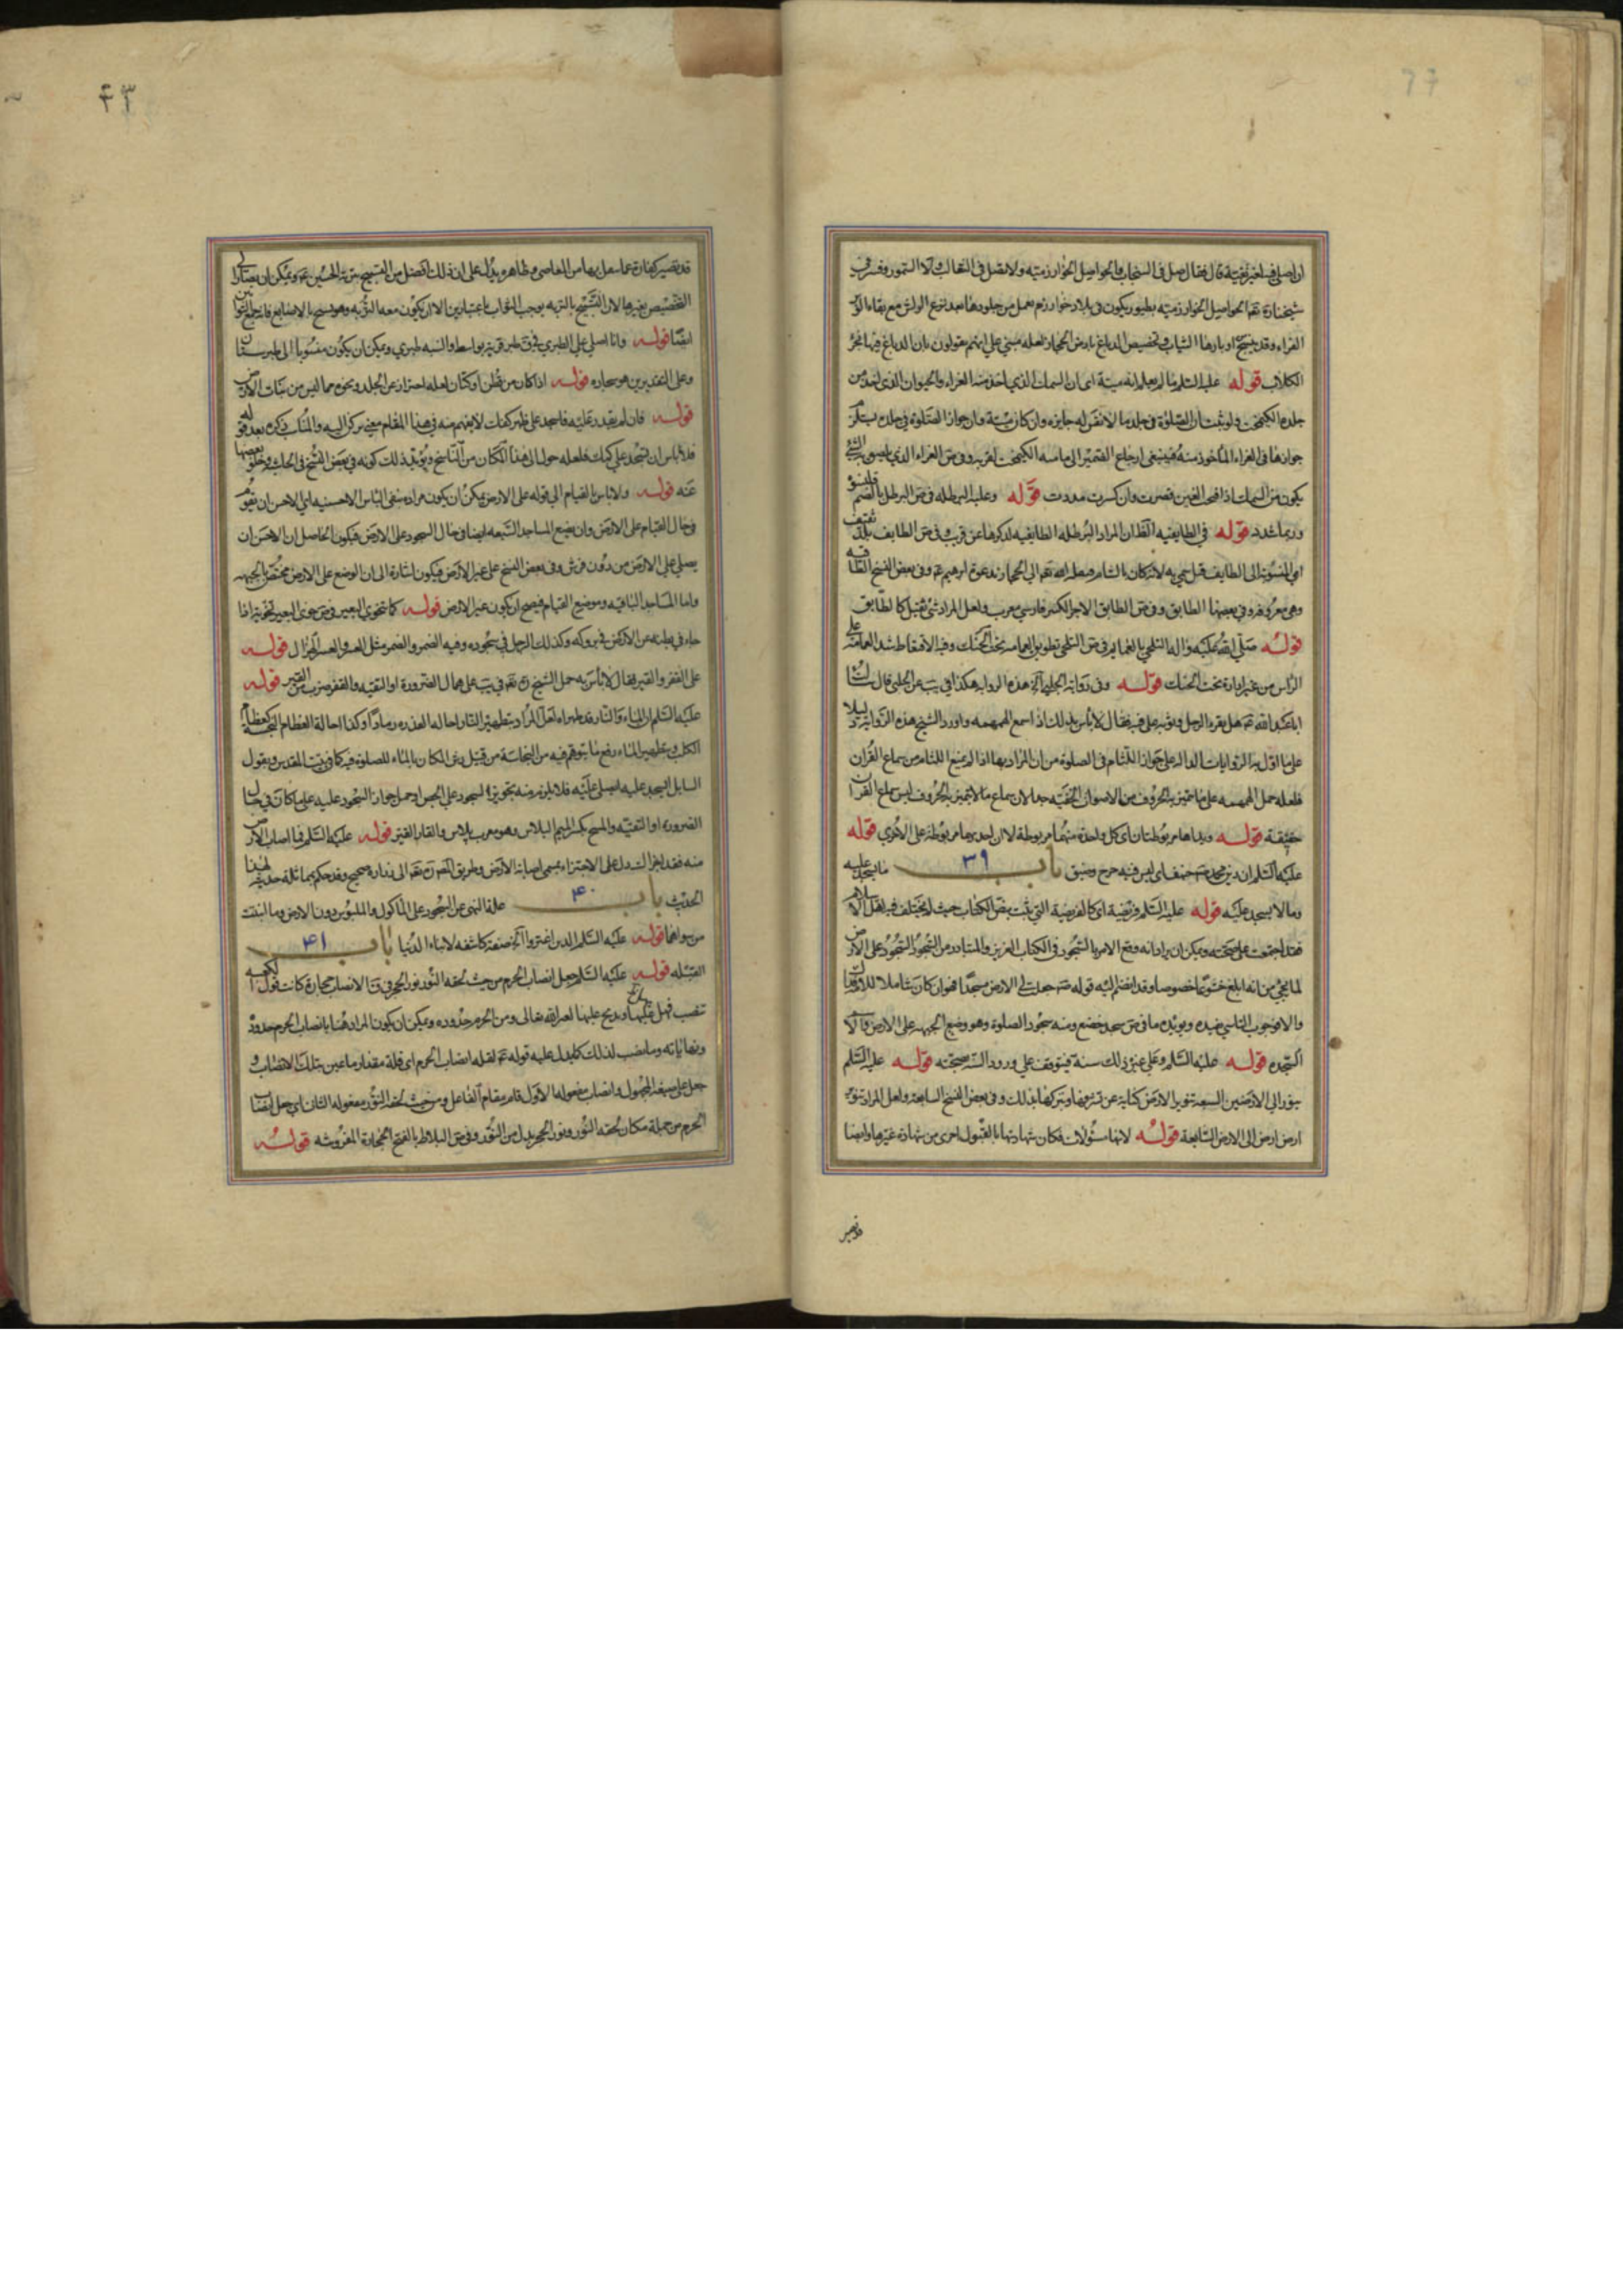 ان اصلي فيه لغير تقية قال فقال صل في السنجاب والحواصل الخوارزمية ولا تصل في الثعالب ولا السمور وفسر في
شيخنا ره تعم الحواصل الخوارزمية بطيور يكون في بلاد خوارزم يعمل من جلودها بعد نزع الريش مع بقاء الوبر
الفراء وقد ينسج اوبارها الثياب وتخصيص الدباغ بارض الحجاز لعله مبني على انهم يقولون بان الدباغ فيها بخرء
الكلاب قوله عليه السلم ما لم يعلم انه ميتة اى ان السمك الذي اخذ منه الغراء والحيوان الذي اخذ من
جلده الكيمخت ولو ثبت ان الصلوة في جلد ما لا نفس له جايزه وان كان ميتة وان جواز الصلوة في جلده يستلزم
جوازها في الغراء المأخوذ منه فينبغي ارجاع الضمير الى ما منه الكيمخت لقربه وفي ص الغراء الذي يلصق به الشي
يكون من السمك اذا فتحت الغين قصرت وان كسرت مددت قوله وعليه البرطله في ص البرطل بالضم قلنسوة
وربما شدد قوله في الطايفيه الظ ان المراد البرطله الطايفيه لذكرها عن قريب وفي ص الطايف بلاد ثقيف
اى المنسوبة الى الطايف قيل سمي به لانه كان بالشام فنقله الله تعم الى الحجاز بدعوة ابرهيم عم وفي بعض النسخ الطاقيه
وهي معروفه وفي بعضها الطابق وفي ص الطابق الاجر الكبير فارسي معرب ولعل المراد شئ ثقيل كالطابق
قوله صلى الله عليه واله التلحي بالعمايم في ص التلحي تطويق العمامه تحت الحنك وفيه الاقتعاط شد العمامه على
الراس من غير ادارة تحت الحنك قوله وفي رواية الحلبي الخ هذه الرواية هكذا في يب عن الحلبي قال سالت
ابا عبد الله عم هل يقرء الرجل وثوبه على فيه فقال لا بأس بذلك اذا سمع الهمهمه واورد الشيخ هذه الرواية دليلا
على ما اول به الروايات الداله على جواز اللثام في الصلوة من ان المراد بها اذا لم يمنع اللثام من سماع القران
فلعله حمل الهمهمه على ما تتميز به الحروف من الاصوات الخفيه جدا لان سماع ما لا يتميز به الحروف ليس سماع القران
حقيقة قوله ويداها مربوطتان اى كل واحدة منهما مربوطة لا ان احديهما مربوطة على الاخرى قوله
عليه السلم ان دين محمد صم حنيف اى ليس فيه حرج وضيق باب ٣٩ ما يسجد عليه
وما لا يسجد عليه قوله عليه السلم فريضة اى كالفريضة التي يثبت بنص الكتاب حيث لم يختلف فيه اهل الاسلام
فقد اجتمعت على صحته ويمكن ان يراد انه وقع الامر بالسجود في الكتاب العزيز والمتبادر من السجود السجود على الارض
لما يجئ من انه ابلغ خشوعا خصوصا وقد انضم اليه قوله صم جعلت لي الارض مسجدا فهو ان كان شاملا للاوقات
والا فوجوب التاسي يفيده ويؤيده ما في ص سجد خضع ومنه سجود الصلوة وهو وضع الجبهه على الارض والا
السجده قوله عليه السلم وعلى غير ذلك سنة فيتوقف على ورود السنه بصحته قوله عليه السلم
ينور الى الارضين السبعه تنوير الارض كناية عن تشرفها وتبركها بذلك وفي بعض النسخ السابعه ولعل المراد تنوير
ارض ارض الى الارض السابعة قوله لانها مسئولات فكان شهادتها بالقبول احرى من شهادة غيرها وايضا
قد تصير
٤٣
قد تصير كفارة عما يعمل بها من المعاصي وظاهره يدل على ان ذلك افضل من التسبيح بتربة الحسين عم ويمكن ان يقال
التخصيص بغيرها لان التسبيح بالتربه يوجب الثواب باعتبارين الا ان يكون معه التربه وهو يسبح بالاصابع فانه يجمع الثوابين
ايضا قوله وانا اصلي على الطبري في ق طبر قرية بواسط والنسبه طبري ويمكن ان يكون منسوبا الى طبرستان
وعلى التقديرين هو سجاده قوله اذا كان من قطن او كتان لعله احتراز عن الجلد ونحوه مما ليس من نبات الارض
قوله فان لم يقدر عليه فاسجد على ظهر كفك لا يفهم منه في هذا المقام معنى يركن اليه والمناسب ذكره بعد قوله
فلا باس ان تسجد على كمك فلعله حول الى هذا المكان من النساخ ويؤيد ذلك كونه في بعض النسخ في الحاشيه وخلو بعضها
عنه قوله ولا باس بالقيام الى قوله على الارض يمكن ان يكون مراده بنفي الباس الاحسنيه اى الاحسن ان يقوم
في حال القيام على الارض وان يضع المساجد السبعه ايضا في حال السجود على الارض فيكون الحاصل ان الاحسن ان
يصلي على الارض من دون فرش وفي بعض النسخ على غير الارض فيكون اشارة الى ان الوضع على الارض مختص بالجبهه
واما المساجد الباقيه وموضع القيام فيصح ان يكون غير الارض قوله كما تخوى البعير في ص خوى البعير تخوية اذا
جافى بطنه عن الارض في بروكه وكذلك الرجل في سجوده وفيه الضمر والضمر مثل العسر والعسر الهزال قوله
على القفر والقير فقال لا بأس به حمل الشيخ ره تعم في يب على حال الضرورة او التقيه والقفر ضرب من القير قوله
عليه السلم ان الماء والنار قد طهراه لعل المراد بتطهير النار احاله العذره رمادا وكذا احالة العظام النجسه كعظام
الكلب وبتطهير الماء رفع ما يتوهم فيه من النجاسة من قبيل رش المكان بالماء للصلوة فيه كما في بيت المقدس ويقول
السايل ايسجد عليه ايصلي عليه فلا يلزم منه تجويزه السجود على الجص او حمل جواز السجود عليه على ما كان في حال
الضرورة او التقيه والمسح بكسر الميم البلاس وهو معرب پلاس والقار القير قوله عليه السلم فما اصاب الارض
منه فقد اجزاك يدل على الاجتزاء بمسمى اصابة الارض وطريق المص ره تعم الى زراره صحيح وقد حكم بمماثله حديثه لهذا
الحديث باب ٤٠ علة النهي عن السجود على المأكول والملبوس دون الارض وما انبتت
من سواهما قوله عليه السلم الذين اغتروا الخ صفة كاشفه لابناء الدنيا باب ٤١
القبله قوله عليه السلم جعل انصاب الحرم من حيث لحقه النور نور الحجر في ق الانصاب حجارة كانت حول الكعبه
تنصب فيهل عليها ويذبح عليها لغير الله تعالى ومن الحرم حدوده ويمكن ان يكون المراد هنا بانصاب الحرم حدوده
ونهاياته وما نصب لذلك كما يدل عليه قوله عم لقله انصاب الحرم اى قلة مقدار ما عين بتلك الانصاب و
جعل على صيغة المجهول وانصاب مفعوله الاول قام مقام الفاعل ومن حيث لحقه النور مفعوله الثاني اى جعل انصاب
الحرم من جملة مكان لحقه النور ونور الحجر بدل من النور وفي ص البلاط بالفتح الحجارة المفروشه قوله